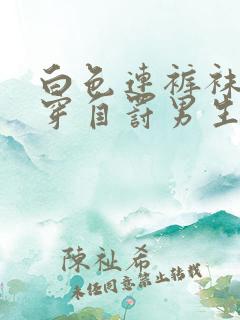 白色连裤袜
穿自罚男生
陳祉希
未经同意禁止转载